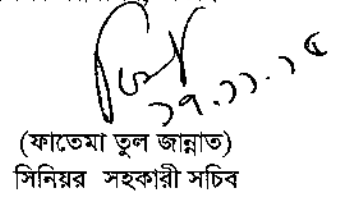 ২৭.১১.২৫
(ফাতেমা তুল জান্নাত)
সিনিয়র সহকারী সচিব